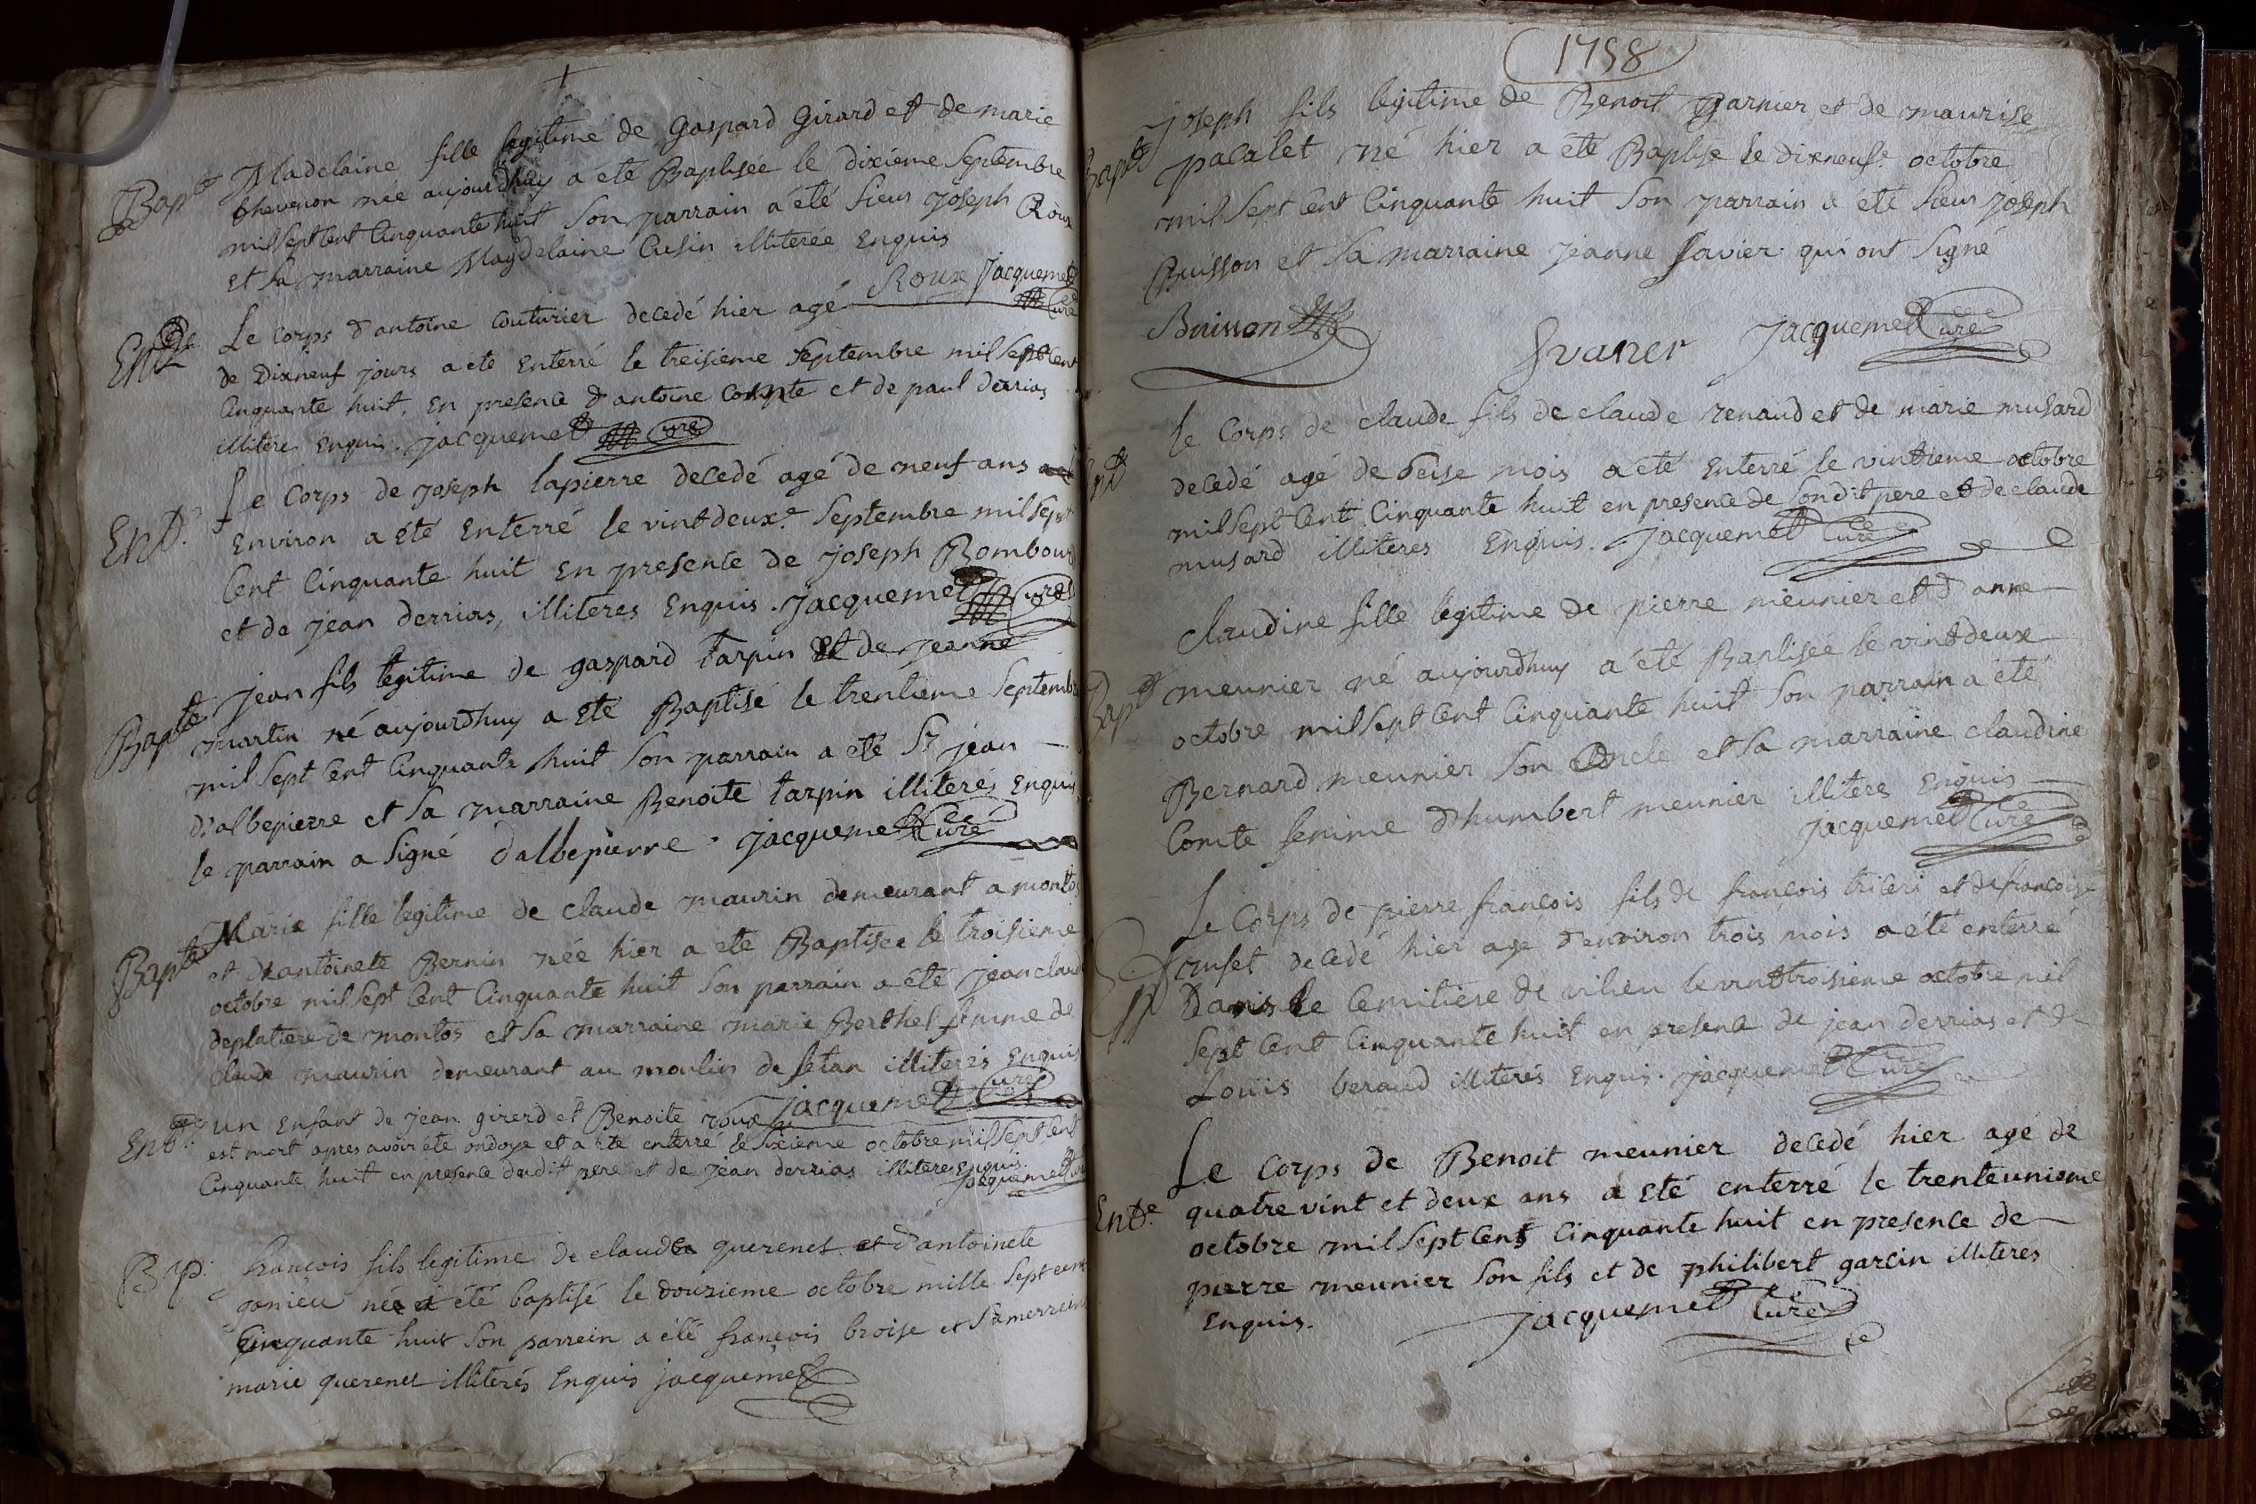 Bapte Madelaine fille legitime de Gaspard Girard et de marie
thevenon née aujourdhuy a eté Baptisée le dixieme Septembre
mil Sept Cent Cinquante huit Son parrain a été Sieur Joseph Roux
et Sa marraine Magdelaine Cusin illiterée Enquis
Roux Jacquemet Curé
Ent Le Corps d'antoine couturier decedé hier agé
de Dixneuf jours a eté Enterré le treisieme Septembre mil Sept Cent
Cinquante huit, En presence d'antoine Compte et de paul derrias
illiteres Enquis. Jacquemet Curé
Ent. Le Corps de Joseph lapierre decedé agé de neuf ans
Environ a été Enterré le vintdeuxe Septembre mil Sept
Cent Cinquante huit En presente de Joseph Bombour
et de jean derrias, illiteres Enquis. Jacquemet Curé
Bapte jean fils legitime de gaspard tarpin et de jeanne
martin né aujourdhuy a eté Baptisé le trentieme Septembre
mil Sept Cent Cinquante huit Son parrain a eté Sr jean
d'albepierre et Sa marraine Benoite tarpin illiterés Enquis
le parrain a Signé dalbepierre . Jacquemet Curé
Bapte Marie fille legitime de claude maurin demeurant a montos
et d'antoinete Bernin née hier a eté Baptisee le troisieme
octobre mil Sept Cent Cinquante huit Son parrain a eté jean claude
deplatiere de montos et Sa marraine marie Berthet femme de
claude maurin demeurant au moulin de Setan illiterés Enquis
Jacquemet Curé
Ent. un Enfant de jean girerd et Benoite roux
est mort apres avoir ete ondoye et a eté enterré le Sixieme octobre mil Sept Cent
Cinquante huit en presence dudit pere et de jean derrias illiteres Enquis.
Jacquemet Curé
Bap. francois fils legitime de claude querenet et d'antoinete
goniéu né a été baptisé le douzieme octobre mille Sept cent
Cinquante huit Son parrein a été francois broise et Samerreine
marie querenet illiterés Enquis jacquemet
1758
Bapt Joseph fils legitime de Benoit Garnier et de maurise
pacalet né hier a été Baptisé le dixneufe octobre
mil Sept Cent Cinquante huit Son parrain a été Sieur Joseph
Buisson et Sa marraine jeanne Savier qui ont Signé
Buisson Jacquemet Curé
Ent Le Corps de claude fils de claude renaud et de marie musard
decedé agé de Seise mois a eté Enterré le vintieme octobre
mil Sept Cent Cinquante huit en presence de Sondit pere et de claude
musard illiteres Enquis. Jacquemet Curé
Bapt Claudine fille legitime de pierre meunier et d'anne
meunier né aujourdhuy a été Baptisée le vintdeux
octobre mil Sept Cent Cinquante huit Son parrain a été
Bernard meunier Son Oncle et Sa marraine claudine
Comte femme d'humbert meunier illitères Enquis
Jacquemet Curé
Le Corps de pierre francois fils de francois et de francoise
cuset decedé hier age d'environ trois mois a été enterré
Dans le Cemitiere de vilieu le vinttroisieme octobre mil
Sept Cent Cinquante huit en presence de jean derrias et de
Louis beraud illiterés Enquis. Jacquemet Curé
Ente. Le Corps de Benoit meunier decedé hier agé de
quatre vint et deux ans a eté enterré le trenteunieme
octobre mil Sept Cent Cinquante huit en presence de
pierre meunier Son fils et de philibert garcin illiteres
Enquis. Jacquemet Curé